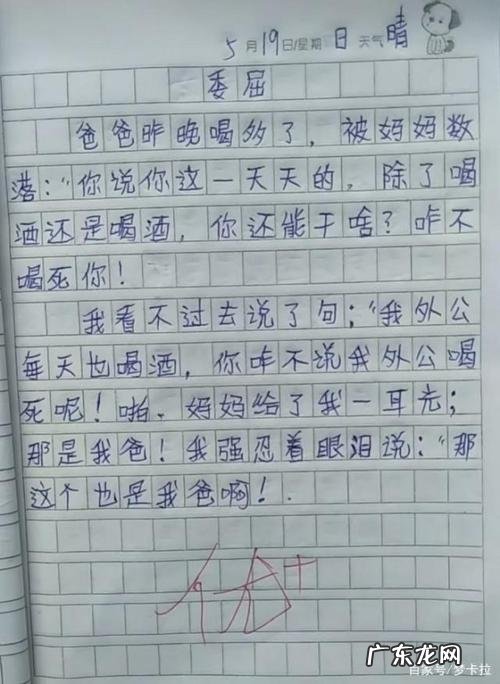 5月19日/星期日 天气晴
委屈
爸爸昨晚喝多了，被妈妈数
落：“你说你这一天天的，除了喝
酒还是喝酒，你还能干啥？咋不
喝死你！
我看不过去说了句；“我外公
每天也喝酒，你咋不说我外公喝
死呢！啪、妈妈给了我一耳光；
那是我爸！我强忍着眼泪说：“那
这个也是我爸啊！.
优+
广东龙网
百家号/梦卡拉